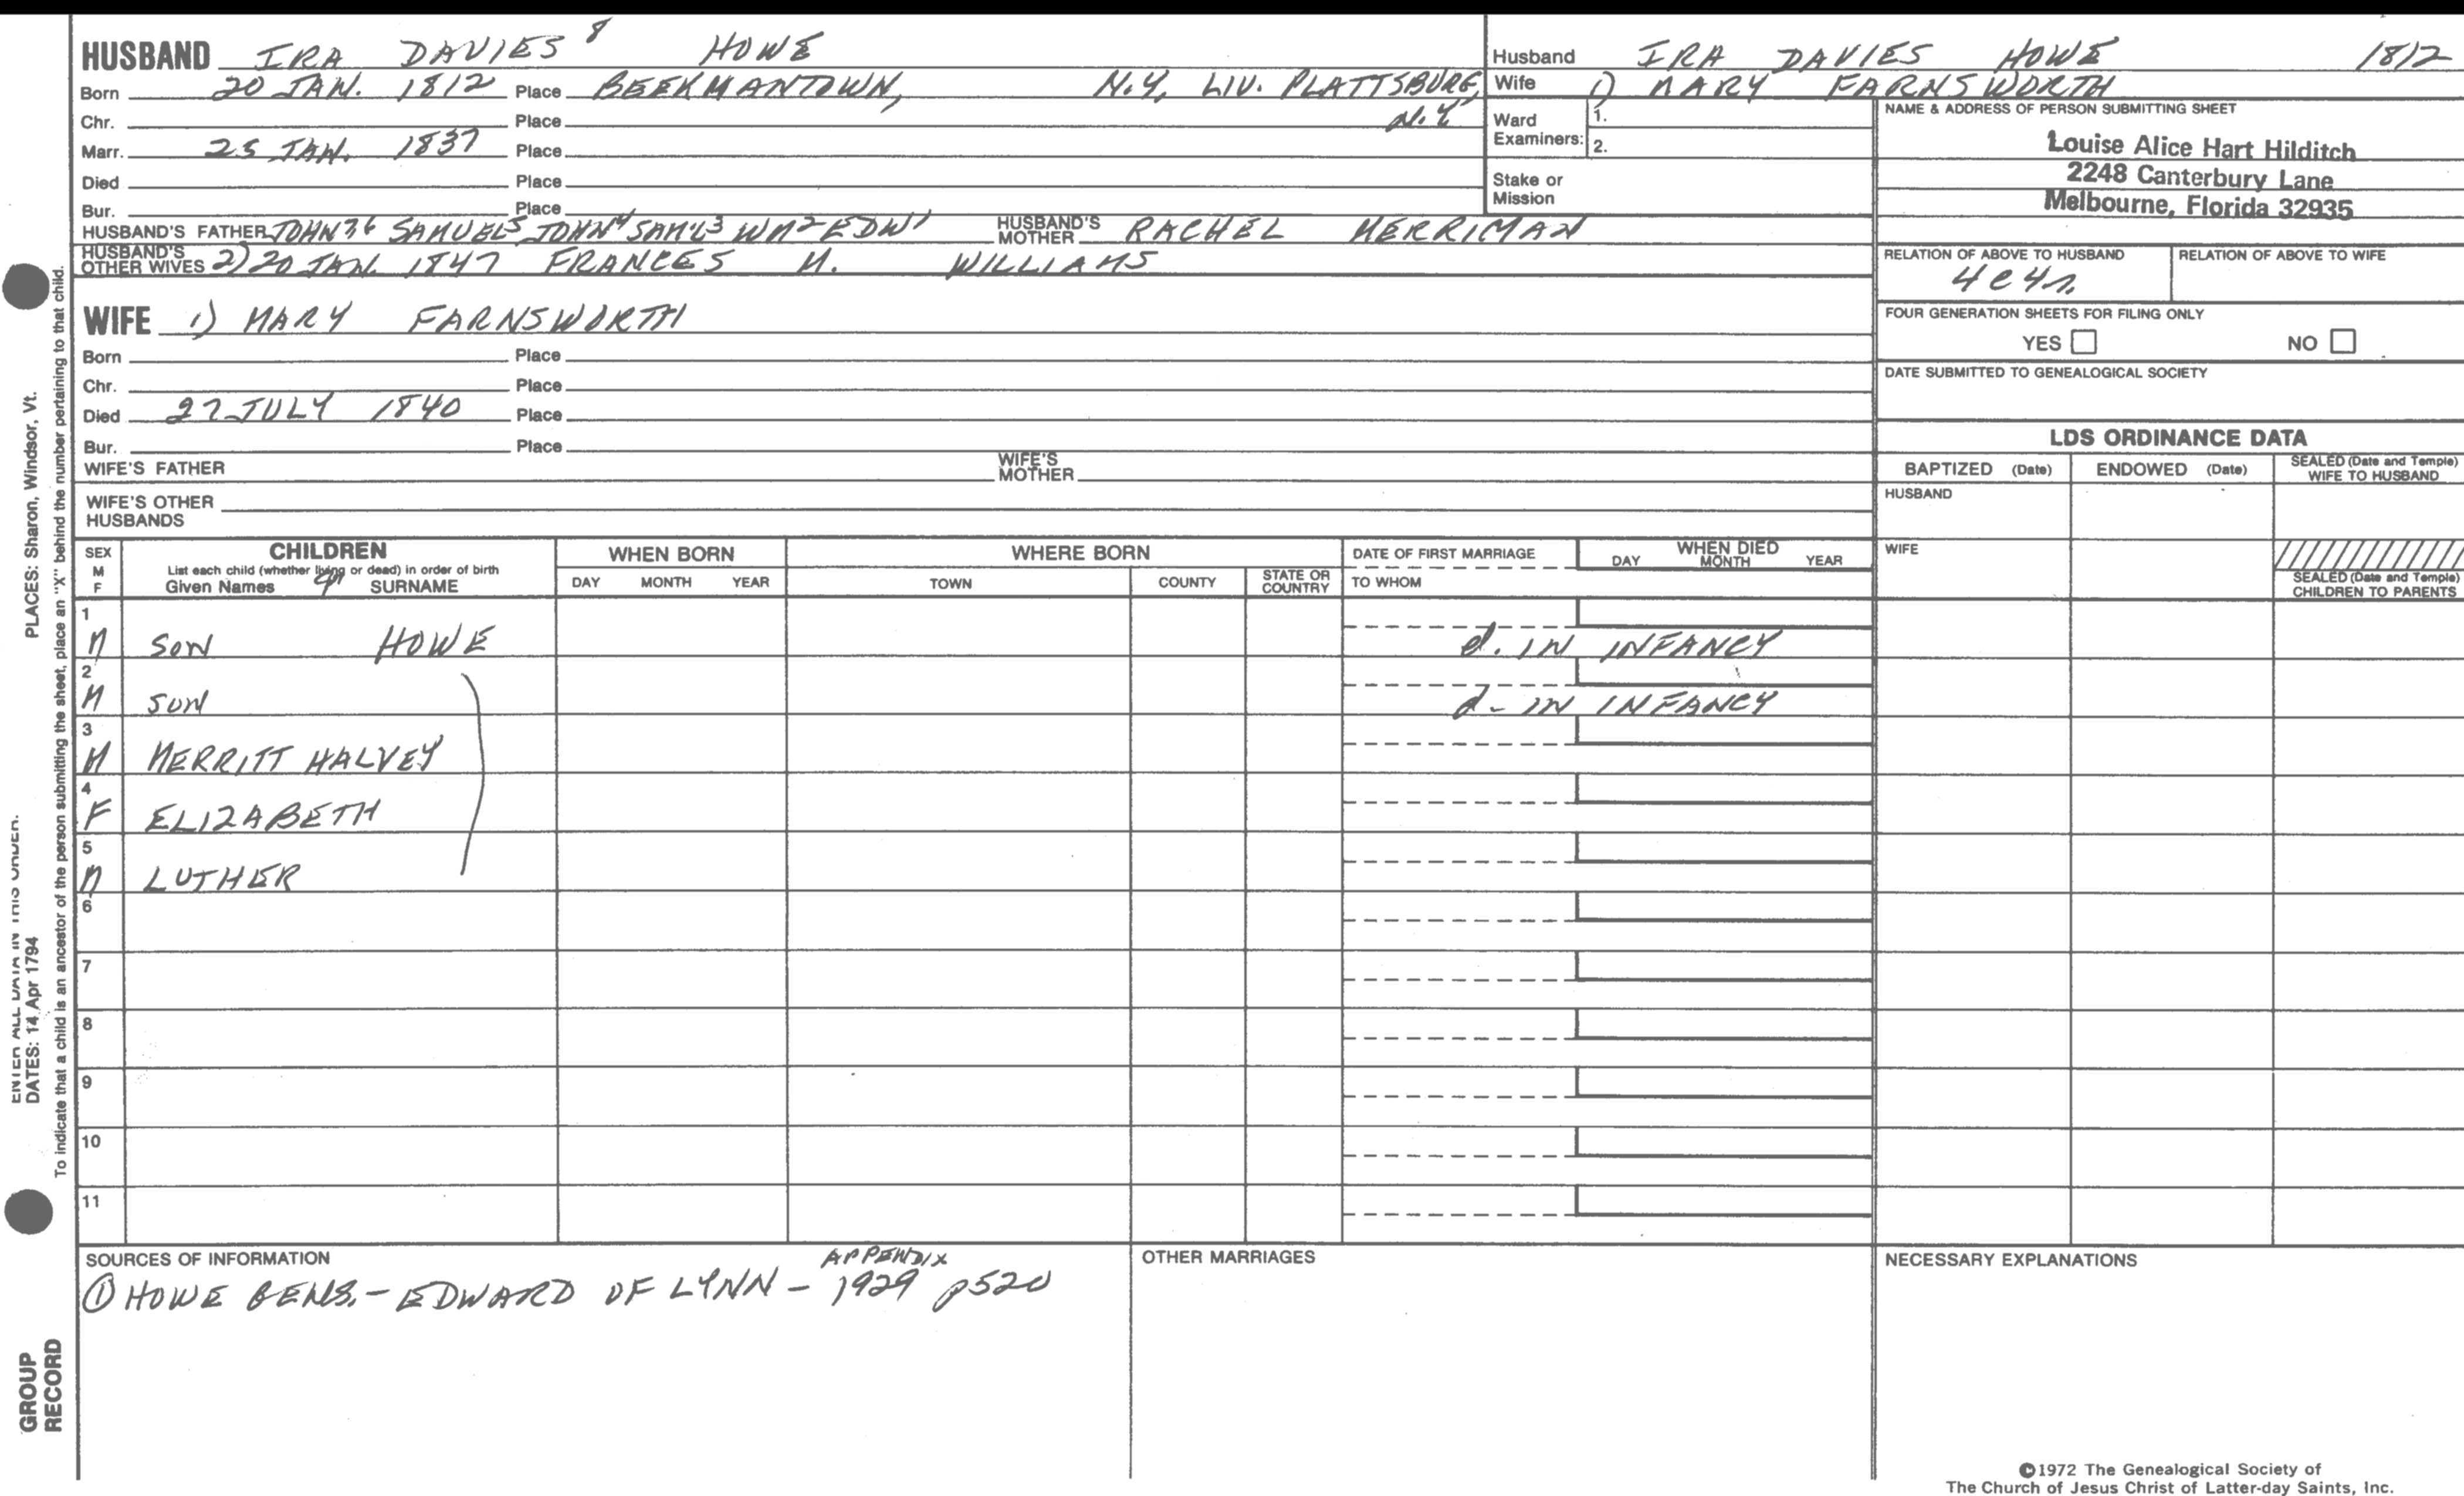 HUSBAND IRA DAVIES 8 HOWE
Born 20 JAN. 1812 Place BEEKMANTOWN, N.Y. LIV. PLATTSBURG,
Chr. Place N.Y.
Marr. 25 JAN. 1837 Place
Died Place
Bur. Place
HUSBAND'S FATHER JOHN 7 6 SAMUEL5 JOHN4 SAML3 WM2 EDW1 HUSBAND'S MOTHER RACHEL MERRIMAN
HUSBAND'S OTHER WIVES 2) 20 JAN. 1847 FRANCES M. WILLIAMS
WIFE 1) MARY FARNSWORTH
Born Place
Chr. Place
Died 27 JULY 1840 Place
Bur. Place
WIFE'S FATHER WIFE'S MOTHER
WIFE'S OTHER HUSBANDS
Husband IRA DAVIES HOWE 1812
Wife 1) MARY FARNSWORTH
Ward Examiners: 1.
2.
Stake or Mission
NAME & ADDRESS OF PERSON SUBMITTING SHEET
Louise Alice Hart Hilditch
2248 Canterbury Lane
Melbourne, Florida 32935
RELATION OF ABOVE TO HUSBAND RELATION OF ABOVE TO WIFE
4c4r.
FOUR GENERATION SHEETS FOR FILING ONLY
YES NO
DATE SUBMITTED TO GENEALOGICAL SOCIETY
LDS ORDINANCE DATA
BAPTIZED (Date) ENDOWED (Date) SEALED (Date and Temple) WIFE TO HUSBAND
HUSBAND
WIFE
SEALED (Date and Temple) CHILDREN TO PARENTS
SEX M F CHILDREN WHEN BORN WHERE BORN DATE OF FIRST MARRIAGE WHEN DIED
List each child (whether living or dead) in order of birth
Given Names SURNAME DAY MONTH YEAR TOWN COUNTY STATE OR COUNTRY TO WHOM DAY MONTH YEAR
1
M SON HOWE d. IN INFANCY
2
M SON d- IN INFANCY
3
M MERRITT HALVEY
4
F ELIZABETH
5
M LUTHER
6
7
8
9
10
11
SOURCES OF INFORMATION OTHER MARRIAGES NECESSARY EXPLANATIONS
APPENDIX
① HOWE GENS. - EDWARD OF LYNN - 1929 p520
©1972 The Genealogical Society of
The Church of Jesus Christ of Latter-day Saints, Inc.
PLACES: Sharon, Windsor, Vt.
ENTER ALL DATA IN THIS ORDER:
DATES: 14 Apr 1794
To indicate that a child is an ancestor of the person submitting the sheet, place an "X" behind the number pertaining to that child.
GROUP
RECORD